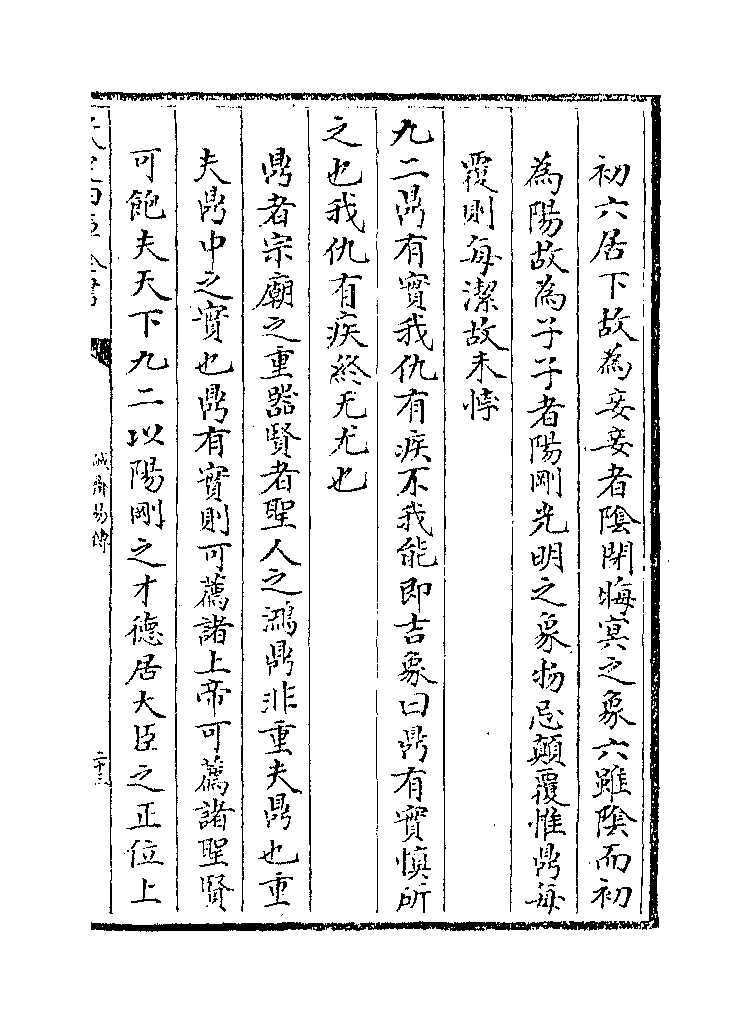 初六居下故為妾妾者陰閉晦冥之象六雖陰而初
為陽故為子子者陽剛光明之象物忌顛覆惟鼎每
覆則每潔故未悖
九二鼎有實我仇有疾不我能即吉象曰鼎有實慎所
之也我仇有疾終无尤也
鼎者宗廟之重器賢者聖人之鴻鼎非重夫鼎也重
夫鼎中之實也鼎有實則可薦諸上帝可薦諸聖賢
可飽夫天下九二以陽剛之才德居大臣之正位上
誠齋易傳
二十三